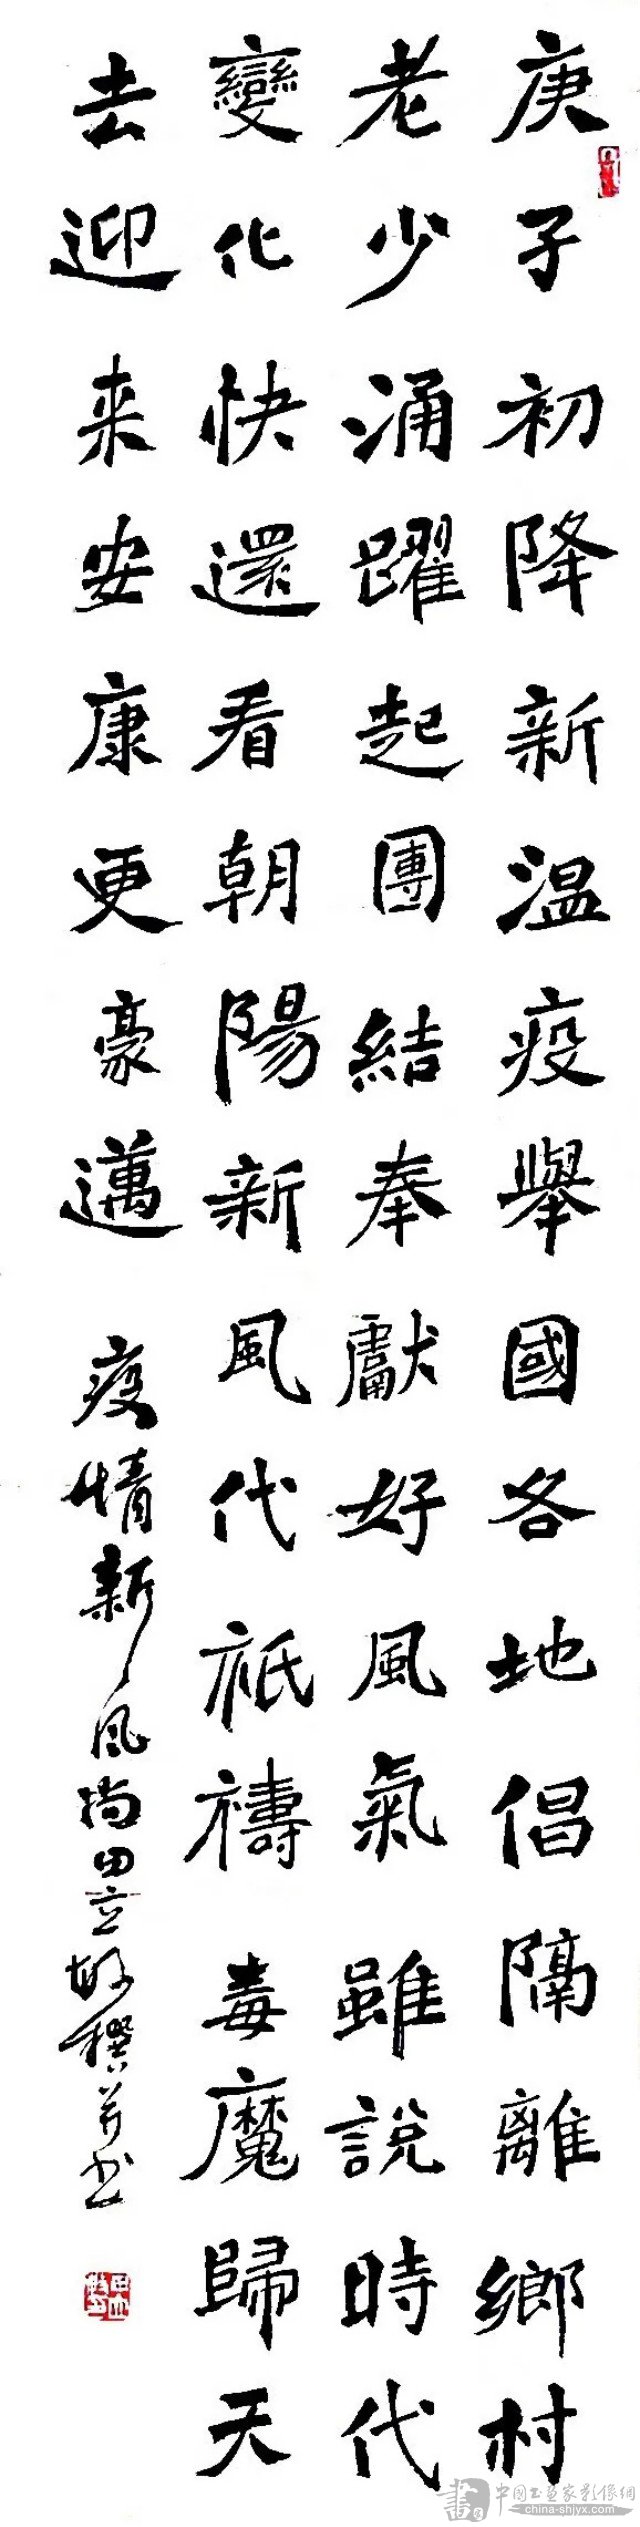 庚子初降新温疫舉國各地倡隔離鄉村
老少涌躍起團結奉獻好風氣雖說時代
變化快還看朝陽新風代祇禱毒魔歸天
去迎来安康更豪邁 疫情新々風尚田立撰并书
中國书画家影像網
china-shjyx.com